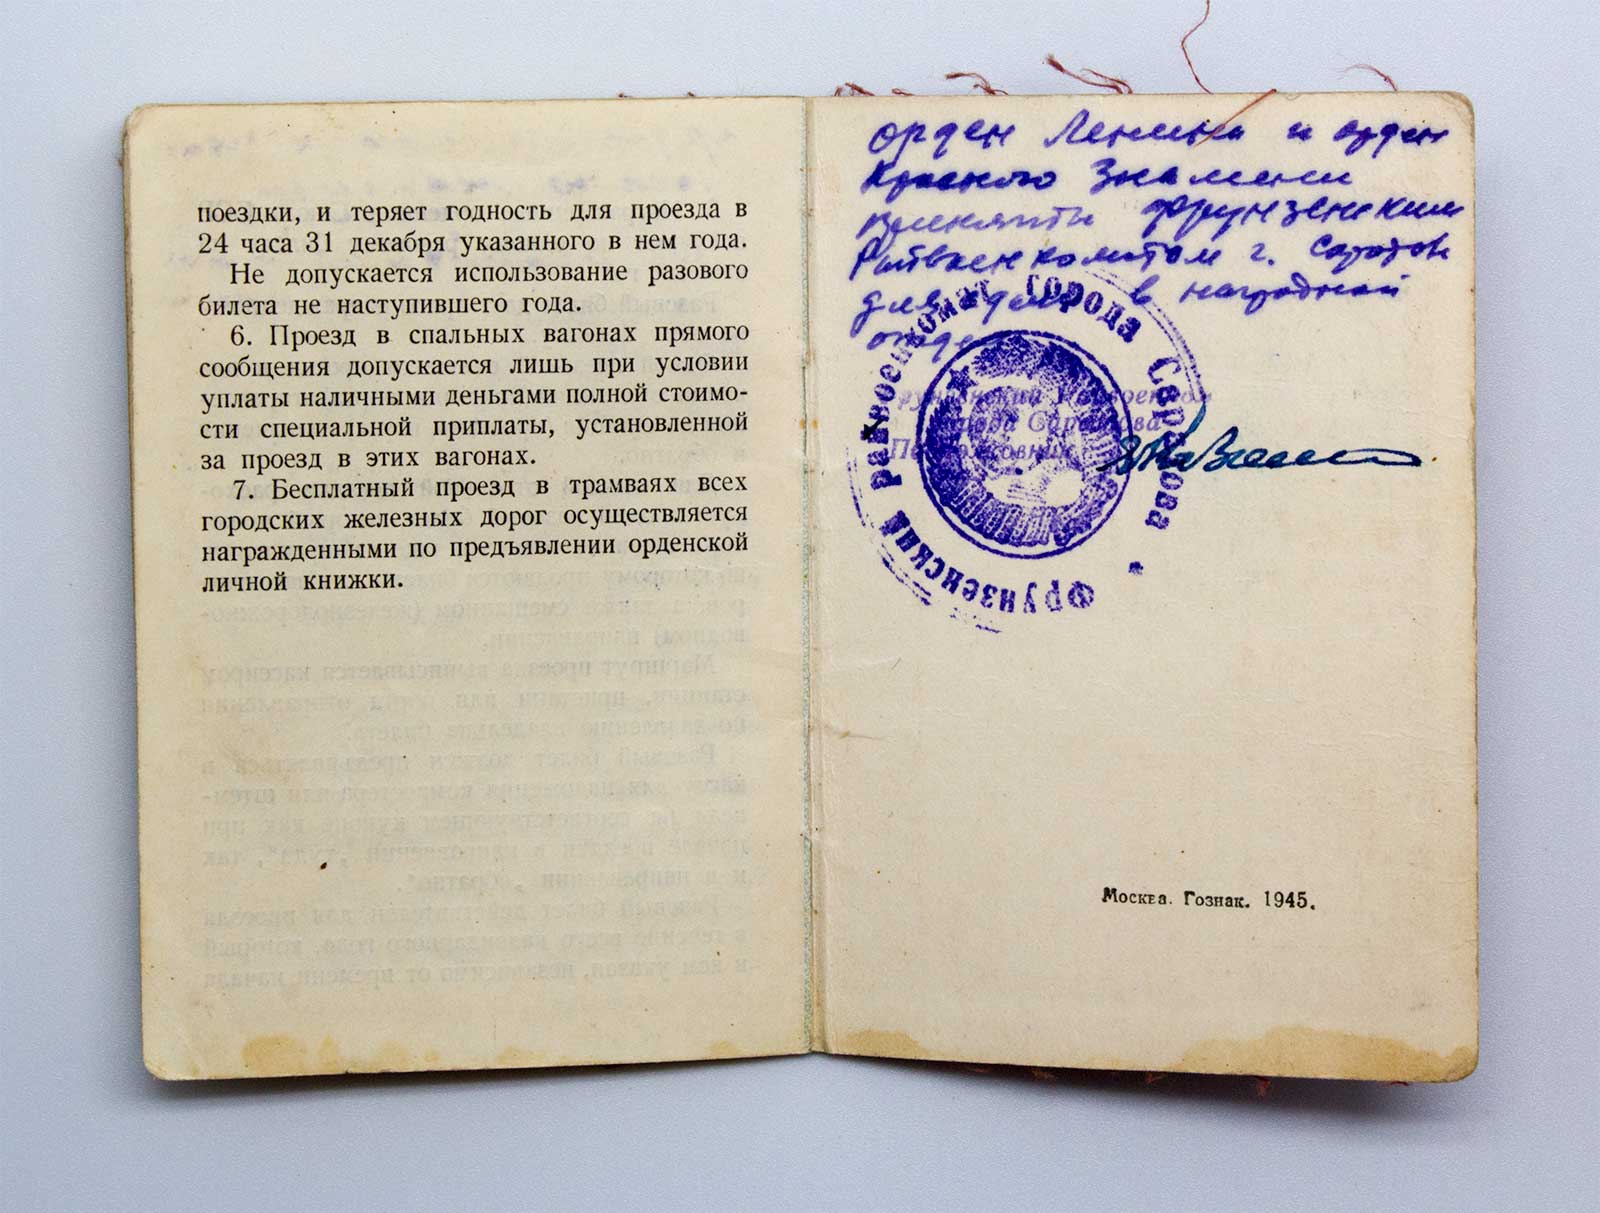 поездки, и теряет годность для проезда в
24 часа 31 декабря указанного в нем года.
Не допускается использование разового
билета не наступившего года.
6. Проезд в спальных вагонах прямого
сообщения допускается лишь при условии
уплаты наличными деньгами полной стоимо-
сти специальной приплаты, установленной
за проезд в этих вагонах.
7. Бесплатный проезд в трамваях всех
городских железных дорог осуществляется
награжденными по предъявлении орденской
личной книжки.
орден Ленина и орден
Красного Знамени
Фрунзенским
Райвоенкоматом г. Саратов
для в наградной
отдел
Фрунзенский райвоенкомат города Саратова *
Фрунзенский Райвоенком
города Саратова
Подполковник
Москва. Гознак. 1945.